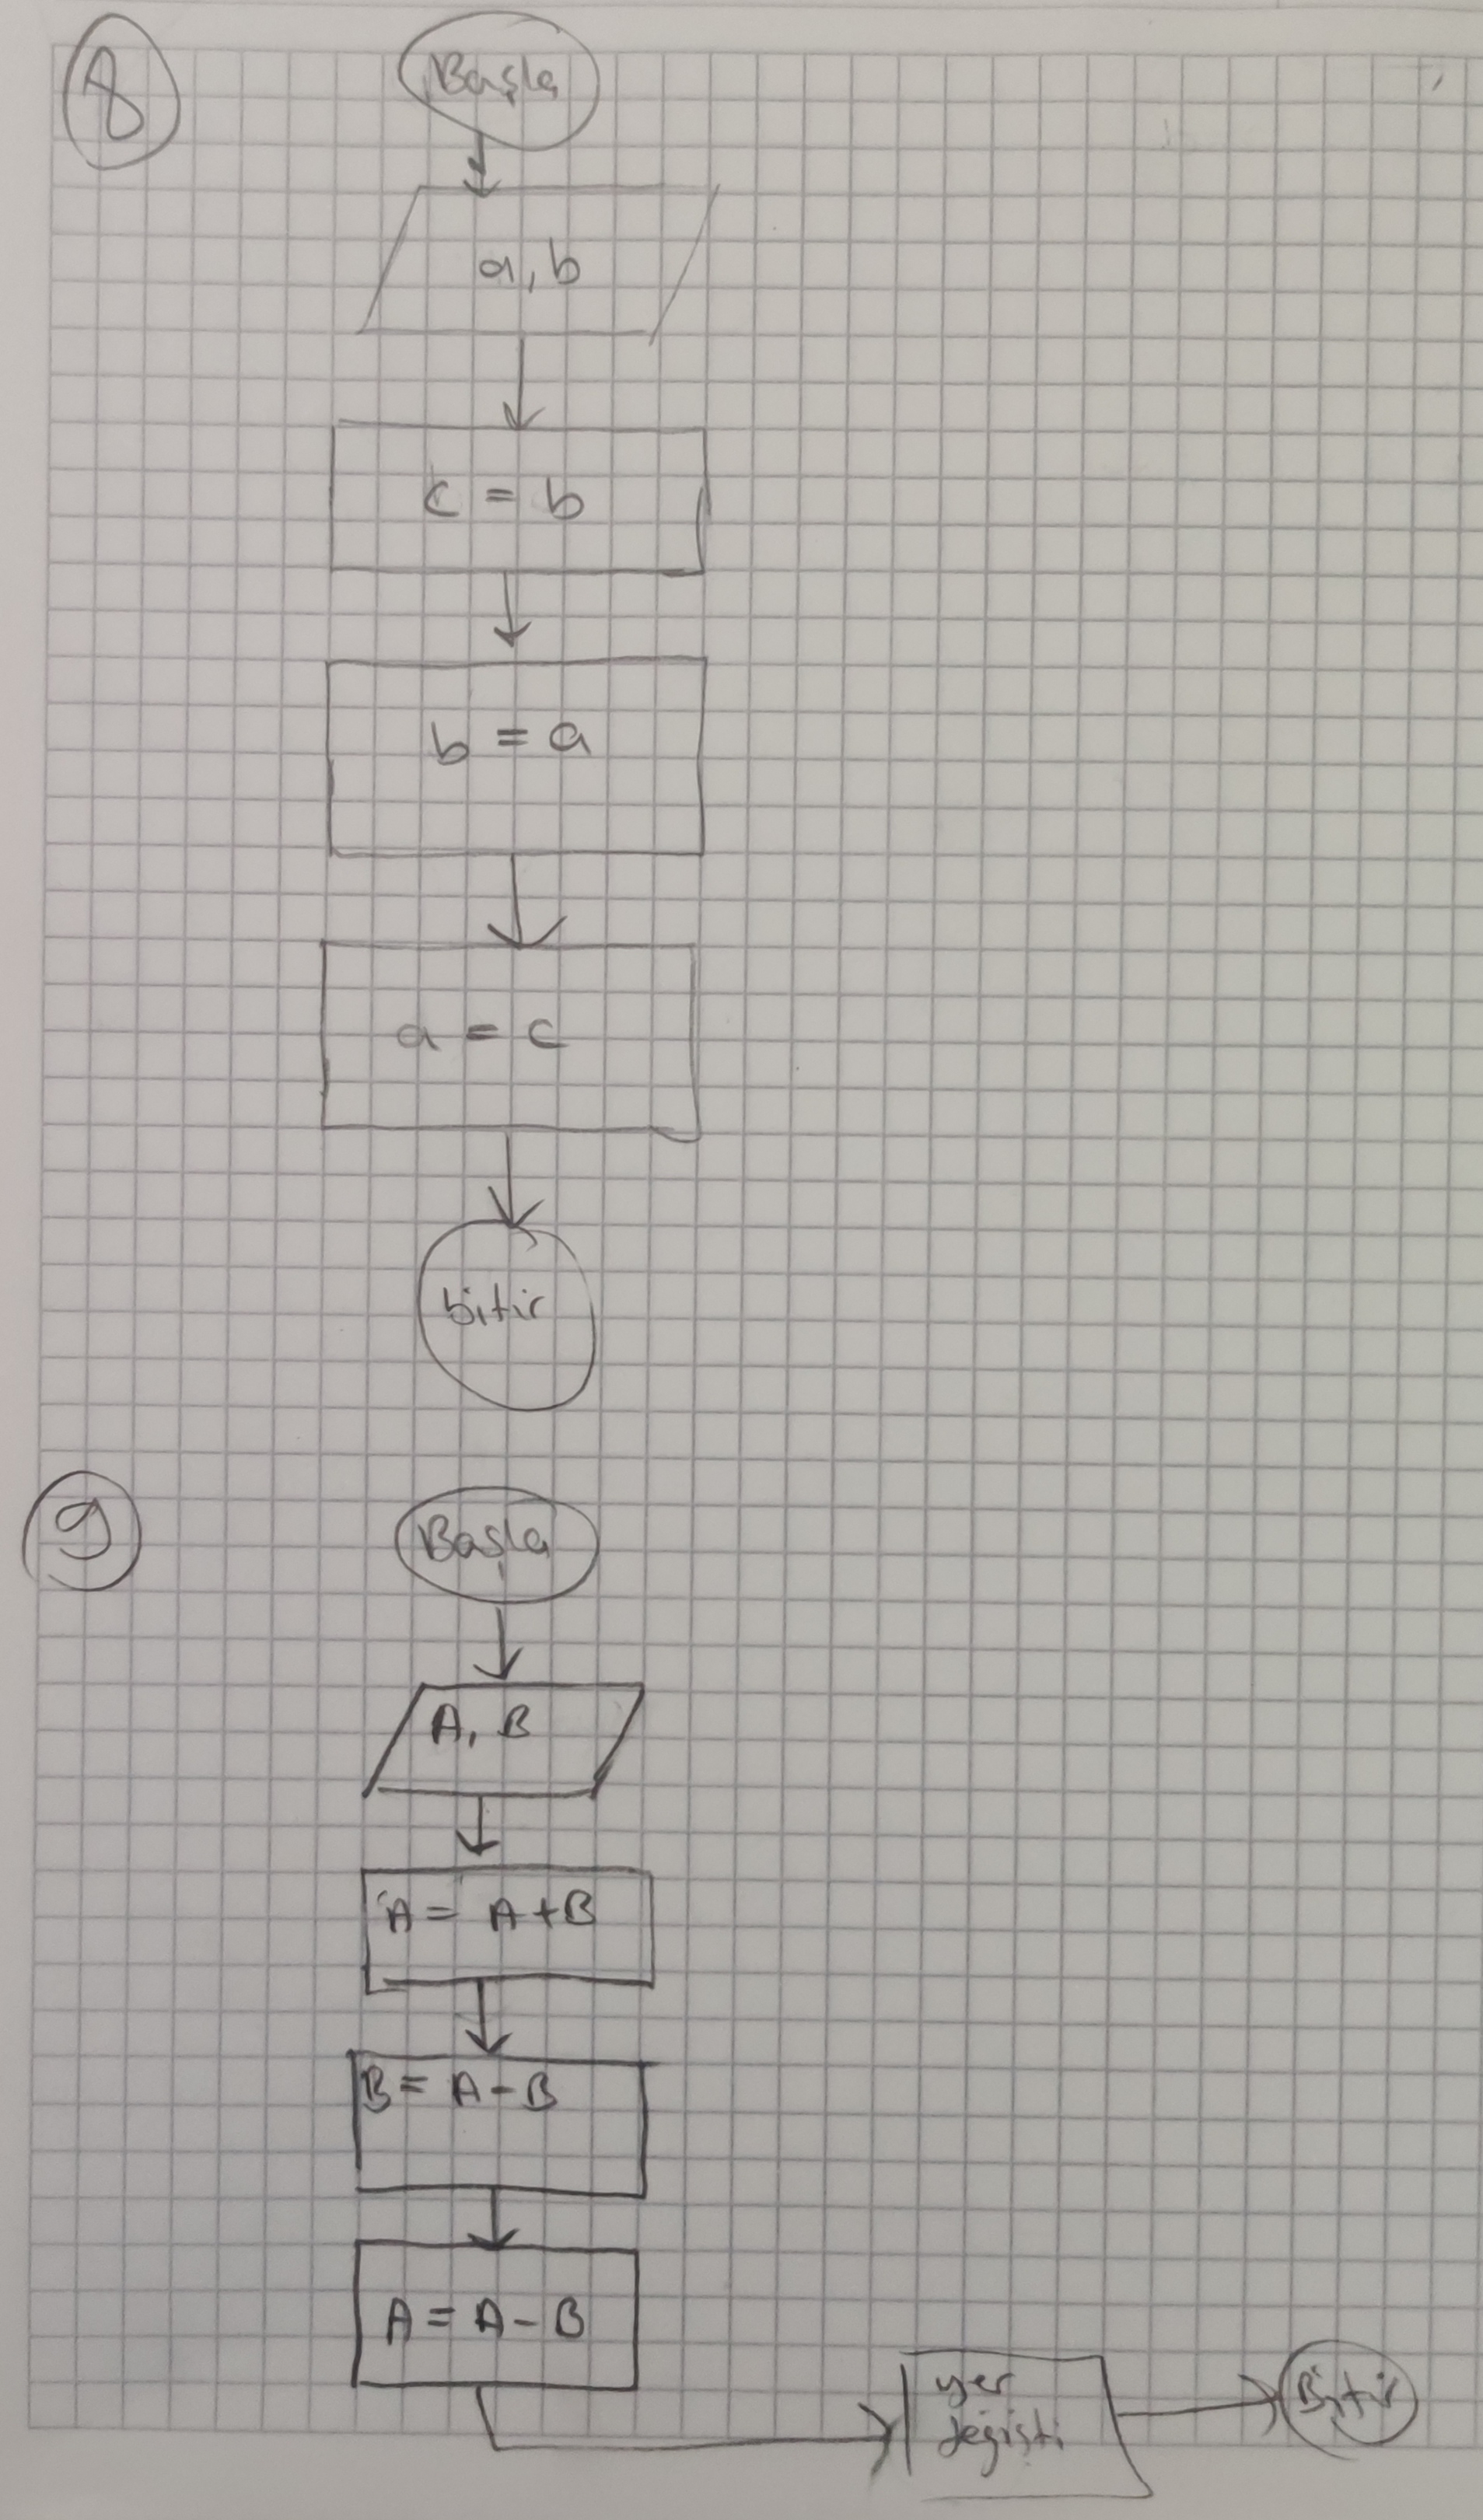 8
Başla
a, b
c = b
b = a
a = c
bitir
9
Başla
A, B
A = A+B
B = A-B
A = A-B
yer
değişti
Bitir